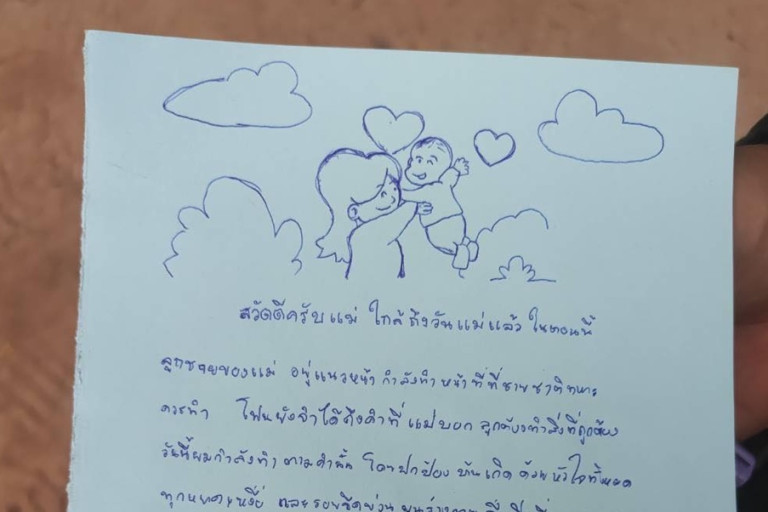 สวัสดีครับแม่ ใกล้ถึงวันแม่แล้ว ในตอนนี้
ลูกชายของแม่ อยู่แนวหน้า กำลังทำหน้าที่ที่ชายชาติทหาร
ควรทำ โฟนยังจำได้ถึงคำที่แม่บอก ลูกต้องทำสิ่งที่ถูกต้อง
วันนี้ผมกำลังทำตามคำนั้น โดยปกป้องบ้านเกิด ด้วยหัวใจทั้งหมด
ทุกหยาดเหงื่อ และรอยขีดข่วน